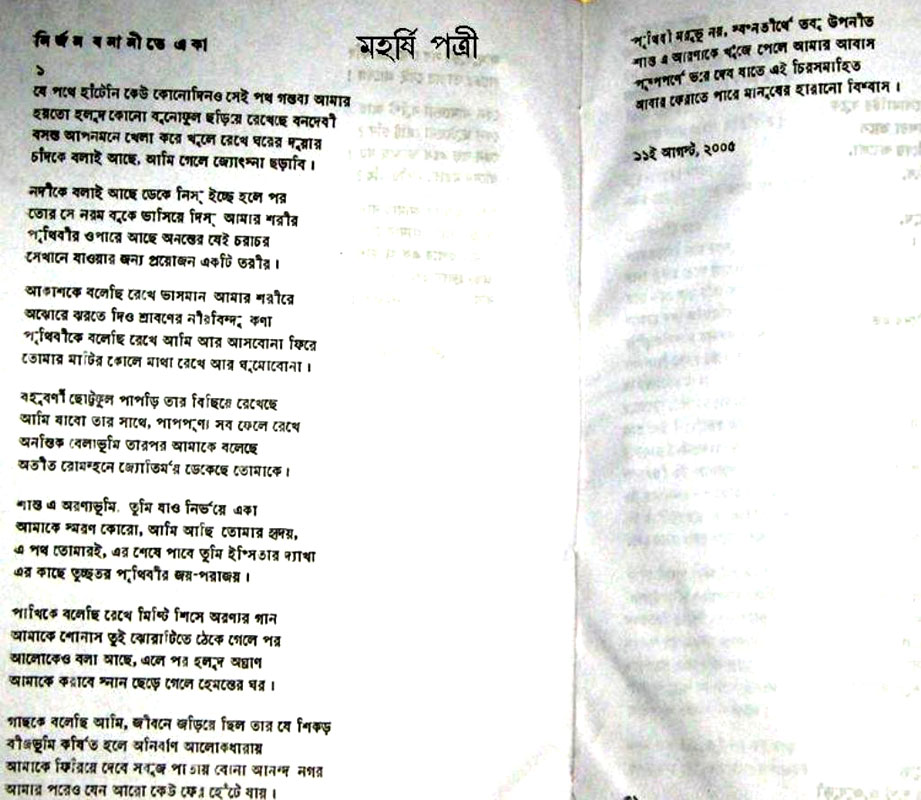 নির্জন বনানীতে একা
মহর্ষি পত্রী
১
যে পথে হাঁটেনি কেউ কোনোদিনও সেই পথ গন্তব্য আমার
হয়তো হলুদ কোনো বুনোফুল ছড়িয়ে রেখেছে বনদেবী
বসন্ত আপনমনে খেলা করে খুলে রেখে ঘরের দুয়ার
চাঁদকে বলাই আছে, আমি গেলে জ্যোৎস্না ছড়াবি ।
নদীকে বলাই আছে ডেকে নিস্ ইচ্ছে হলে পর
তোর সে নরম বুকে ভাসিয়ে দিস্ আমার শরীর
পৃথিবীর ওপারে আছে অনন্তের যেই চরাচর
সেখানে যাওয়ার জন্য প্রয়োজন একটি তরীর ।
আকাশকে বলেছি রেখে ভাসমান আমার শরীরে
অঝোরে ঝরতে দিও শ্রাবণের নীরবিন্দু কণা
পৃথিবীকে বলেছি রেখে আমি আর আসবোনা ফিরে
তোমার মাটির কোলে মাথা রেখে আর ঘুমোবোনা ।
বহুবর্ণী ছোট্টফুল পাপড়ি তার বিছিয়ে রেখেছে
আমি যাবো তার সাথে, পাপপুণ্য সব ফেলে রেখে
অনন্তিক বেলাভূমি তারপর আমাকে বলেছে
অতীত রোমন্থনে জ্যোতির্ময় ডেকেছে তোমাকে ।
শান্ত এ অরণ্যভূমি, তুমি যাও নির্ভয়ে একা
আমাকে স্মরণ কোরো, আমি আছি তোমার হৃদয়,
এ পথ তোমারই, এর শেষে পাবে তুমি ইপ্সিতার দ্যাখা
এর কাছে তুচ্ছতর পৃথিবীর জয়-পরাজয় ।
পাখিকে বলেছি রেখে মিষ্টি শিসে অরণ্যর গান
আমাকে শোনাস তুই ঝোরাটিতে ঠেকে গেলে পর
আলোকেও বলা আছে, এলে পর হলুদ অঘ্রাণ
আমাকে করাবে স্নান ছেড়ে গেলে হেমন্তের ঘর ।
গাছকে বলেছি আমি, জীবনে জড়িয়ে ছিল তার যে শিকড়
বীজভূমি কর্ষিত হলে অনির্বাণ আলোকধারায়
আমাকে ফিরিয়ে দেবে সবুজ পাতায় বোনা আনন্দ নগর
আমার পরেও যেন আরো কেউ ফের হেঁটে যায় ।
পৃথিবী মরুভূ নয়, স্বপ্নতীর্থে তবু উপনীত
শান্ত এ আরণ্যকে খুঁজে পেলে আমার আবাস
পুষ্পপর্ণে ভরে দেব যাতে এই চিরসমাহিত
আবার ফেরাতে পারে মানুষের হারানো বিশ্বাস ।
১১ই আগস্ট, ২০০৫